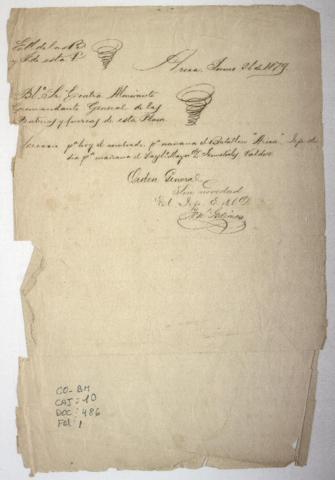 E. M. de las B.
y F. de esta P.
Arica, Junio 26 de 1879
Sr. Contra Almirante
Comandante General de las
Baterias y fuerzas de esta Plaza
Servicio pa. hoy el nombrado pa. mañana el Batallon "Arica" Jefe de
dia pa. mañana el Sarjto. Mayor Dn. Valdez
Orden General
Sin novedad
El Jefe E. M. D.
CO-BM
CAJ: 10
DOC: 486
Fol: 1